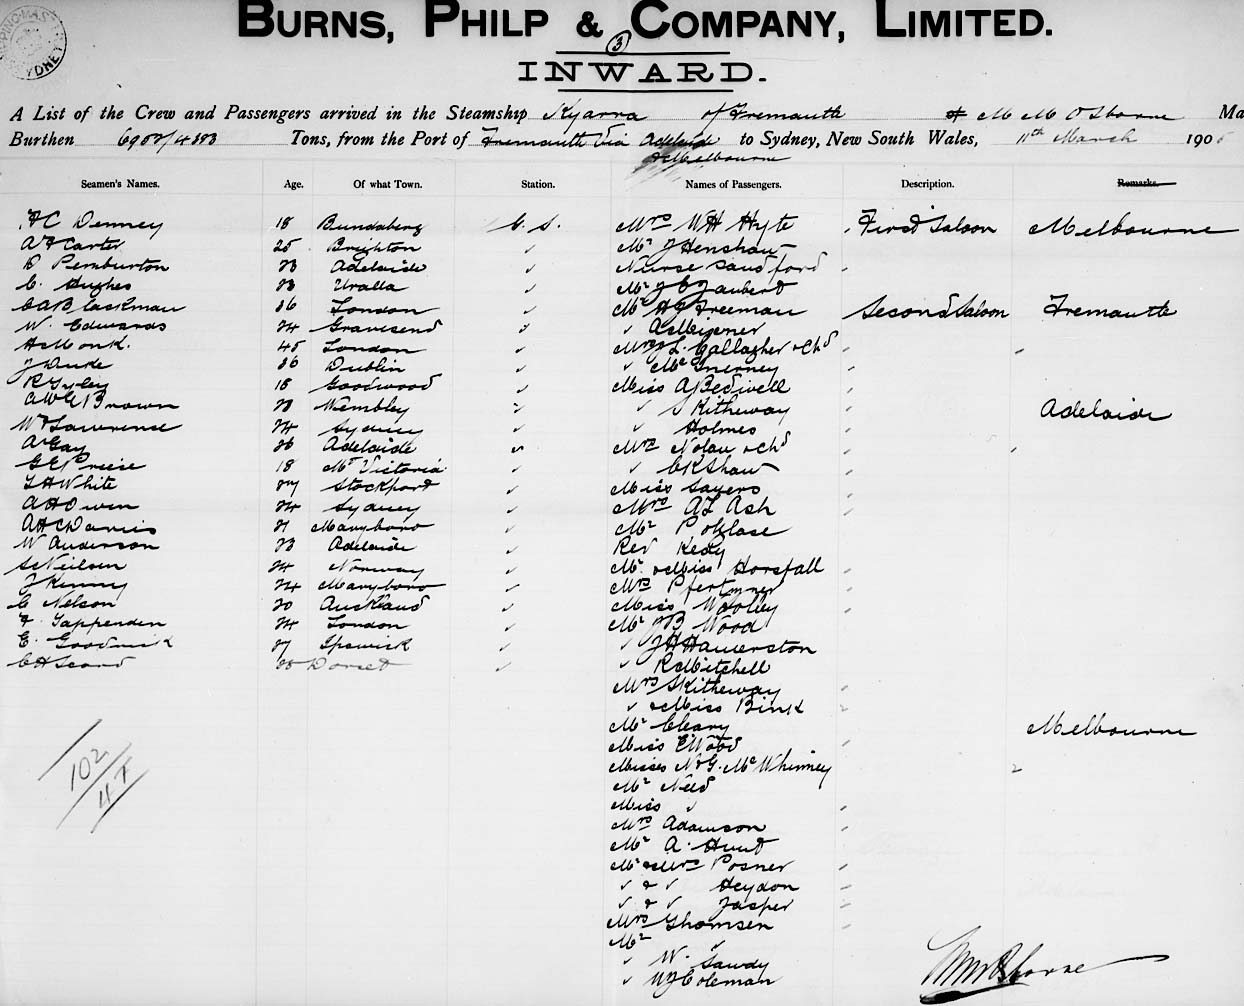 BURNS, PHILP & COMPANY, LIMITED.
3
INWARD.
A List of the Crew and Passengers arrived in the Steamship Kyarra of Fremantle of M M Osborne Ma
Burthen 6953/4383 Tons, from the Port of Fremantle via Adelaide & Melbourne to Sydney, New South Wales, 11th March 190
Seamen's Names. Age. Of what Town. Station. Names of Passengers. Description. Remarks.
H C Denney 18 Bundaberg C. S. Mrs W H Hyte First Saloon Melbourne
A F Carter 25 Brighton " Mr J Henshaw
D Pemburton 23 Adelaide " Nurse Sandford "
C. Hughes 23 Uralla " Mr J C Jaubert
C A Blackman 36 London " Mr H G Freeman Second Saloon Fremantle
W. Edwards 24 Gravesend " " A Meyener
H Monk. 45 London " Mrs J L. Gallagher & Chd " "
J Duke 36 Dublin " " McInerney "
R Tyley 18 Goodwood " Miss A Bedwell "
A W G Brown 23 Wembley " " Skitheway " Adelaide
W Lawrence 24 Sydney " " Holmes "
A Gay 26 Adelaide " Mrs Nolan & Chd " "
G E Preece 18 Mt Victoria " " C K Shaw "
T H White 27 Stockport " Miss Sayers "
A H Owen 24 Sydney " Mrs A L Ash "
A H C Davies 21 Maryboro " Mr Polglase
W Anderson 23 Adelaide " Rev Kedy
S Neilsen 24 Norway " Mr & Miss Horsfall "
J Kenny 24 Maryboro " Mrs Pfertzner "
C Nelson 20 Auckland " Miss Woolley "
F. Tappenden 24 London " Mr J B Wood
E. Goodrick 27 Ipswich " " J H Hamerston
C H Scard 23 Dorset " " R Mitchell
Mrs Skitheway "
" & Miss Bink "
Mr Cleary Melbourne
Miss E Wood "
Misses N & G. McWhinney "
Mr Need
Miss " "
Mrs Adamson "
Mr A. Hunt "
Mr & Mrs Posner "
" & " Heydon "
" & " Jasper "
Mrs Thomsen "
Mr "
" W. Sawdy
" W J Coleman
102
47
M M Osborne